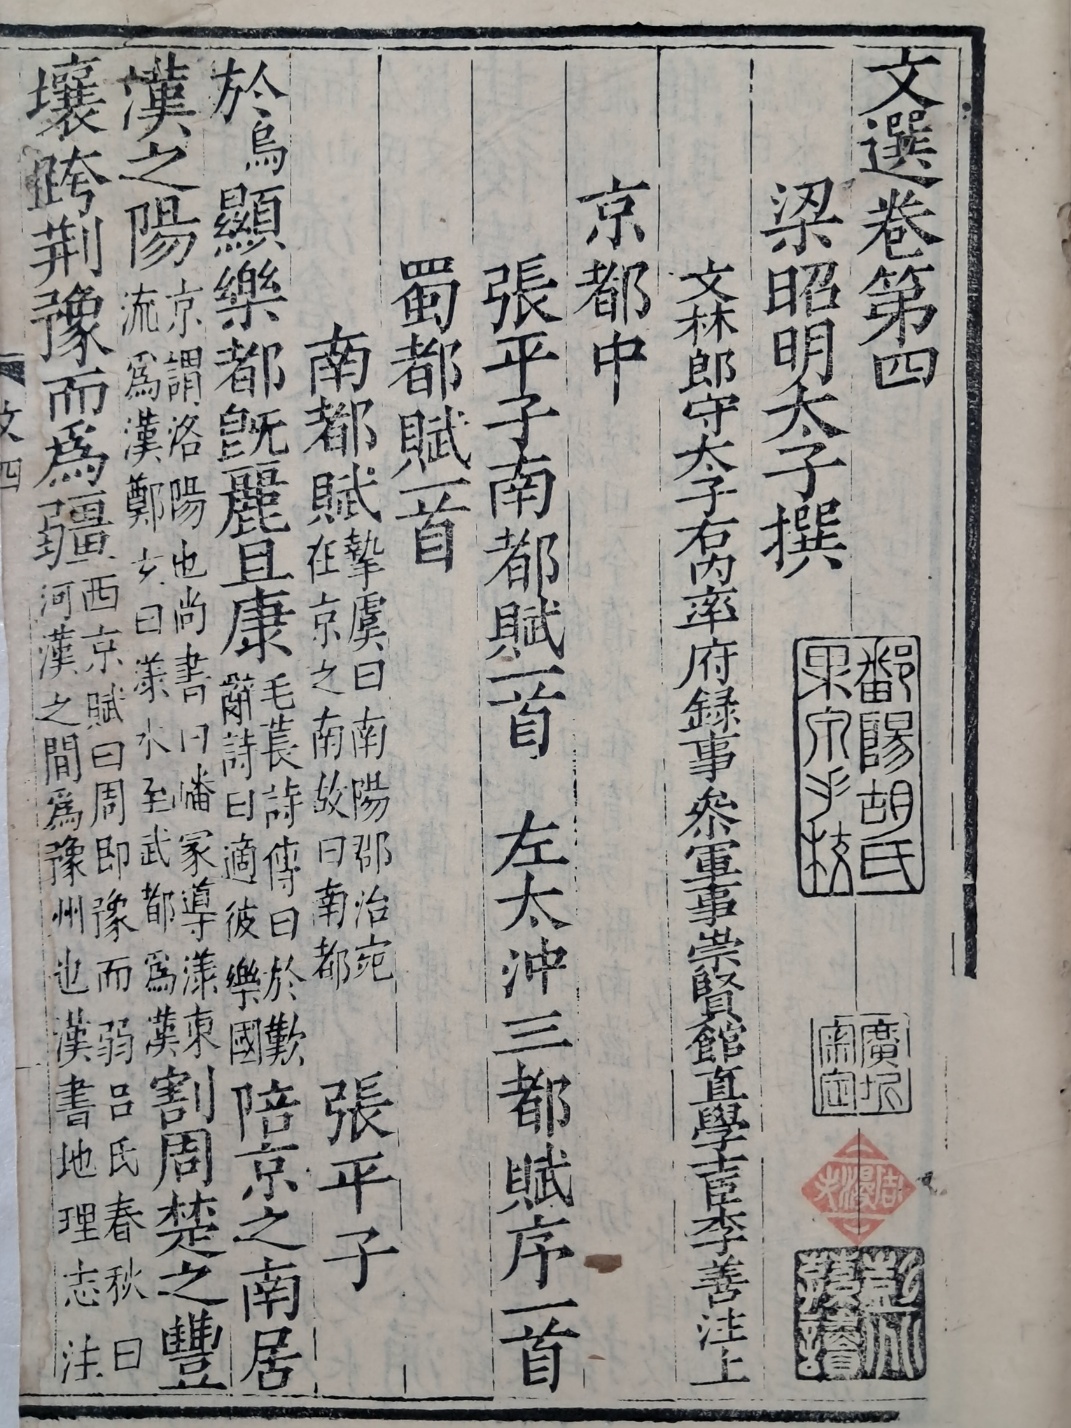 文選卷第四
梁昭明太子撰
文林郎守太子右內率府録事參軍事崇賢館直學士臣李善注上
京都中
張平子南都賦一首 左太沖三都賦序一首
蜀都賦一首
南都賦 摯虞曰南陽郡治宛在京之南故曰南都 張平子
於烏顯樂都既麗且康 毛萇詩傳曰於歎辭詩曰適彼樂國 陪京之南居
漢之陽 京謂洛陽也尚書曰嶓冢導漾東流爲漢鄭玄曰漾水至武都爲漢 割周楚之豐
壤跨荆豫而爲疆 西京賦曰周即豫而弱吕氏春秋曰河漢之間爲豫州也漢書地理志注
文四
鄱陽胡氏
果泉手校